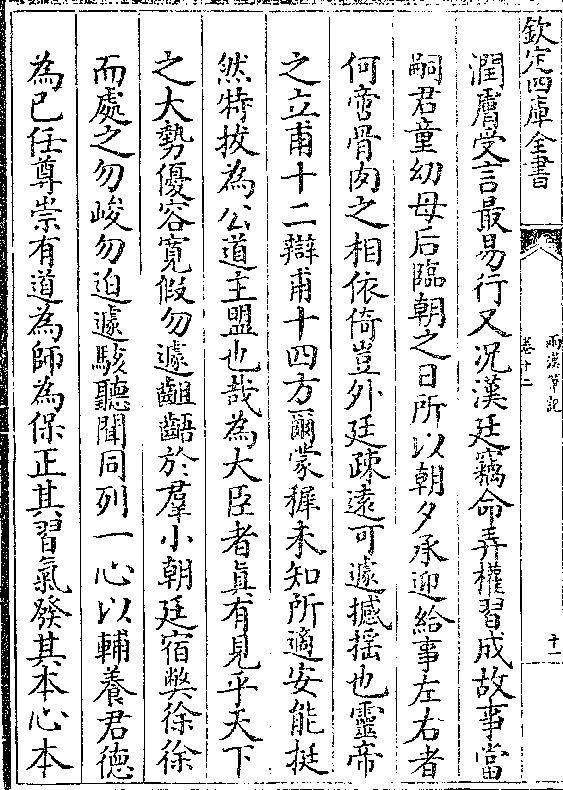 欽定四庫全書
兩漢筆記
卷十二
十一
潤膚受言最易行又況漢廷竊命弄權習成故事當
嗣君童幼母后臨朝之日所以朝夕承迎給事左右者
何啻骨肉之相依倚豈外廷疎逺可遽撼揺也靈帝
之立甫十二辯甫十四方爾蒙穉未知所適安能挺
然特拔為公道主盟也哉為大臣者真有見乎天下
之大勢優容寛假勿遽齟齬於羣小朝廷宿弊徐徐
而處之勿峻勿迫遽駭聽聞同列一心以輔養君德
為己任尊崇有道為師為保正其習氣發其本心本